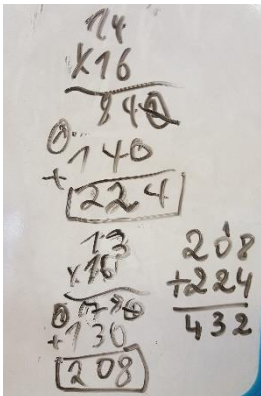 14
×16
84
140
+
224
13
×16
78
+130
208
208
+224
432